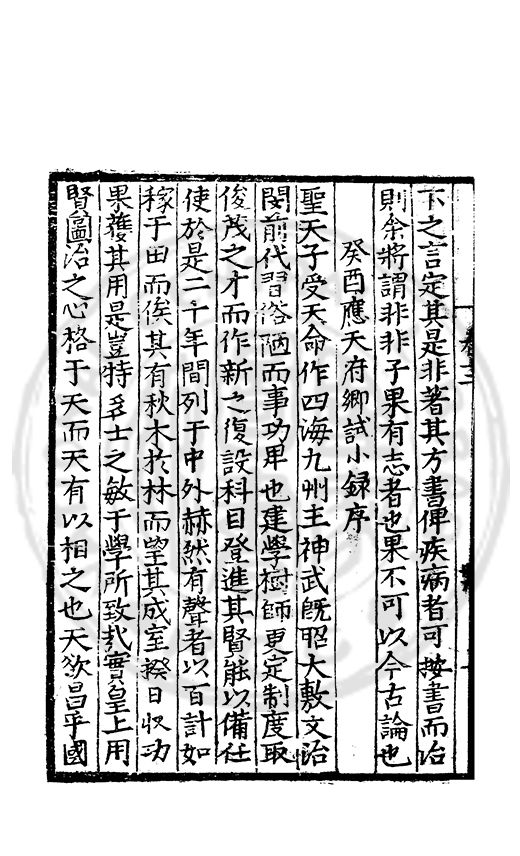 下之言定其是非著其方書俾疾病者可按書而治
則余將謂非非子果有志者也果不可以今古論也
癸酉應天府鄉試小録序
聖天子受天命作四海九州主神武既昭大敷文治
閔前代習俗陋而事功卑也建學樹師更定制度取
俊茂之才而作新之復設科目登進其賢能以備任
使於是二十年間列于中外赫然有聲者以百計如
稼于田而俟其有秋木於林而望其成室揆日收功
果獲其用是豈特多士之敏于學所致哉實皇上用
賢圖治之心格于天而天有以相之也天欲昌乎國